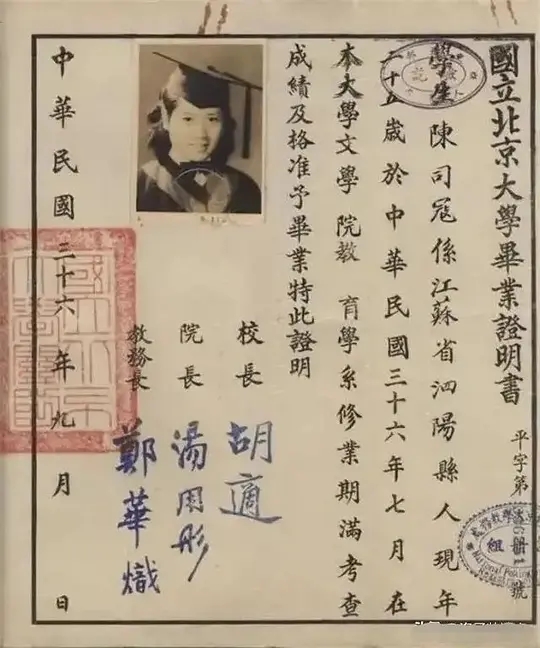 國立北京大學畢業證明書
平字第 號
學生 陳司寇係江蘇省泗陽縣人現年
二十五歲於中華民國三十六年七月在
本大學文學院教育學系修業期滿考查
成績及格准予畢業特此證明
校長 胡適
院長 湯用彤
教務長 鄭華熾
中華民國三十六年九月 日